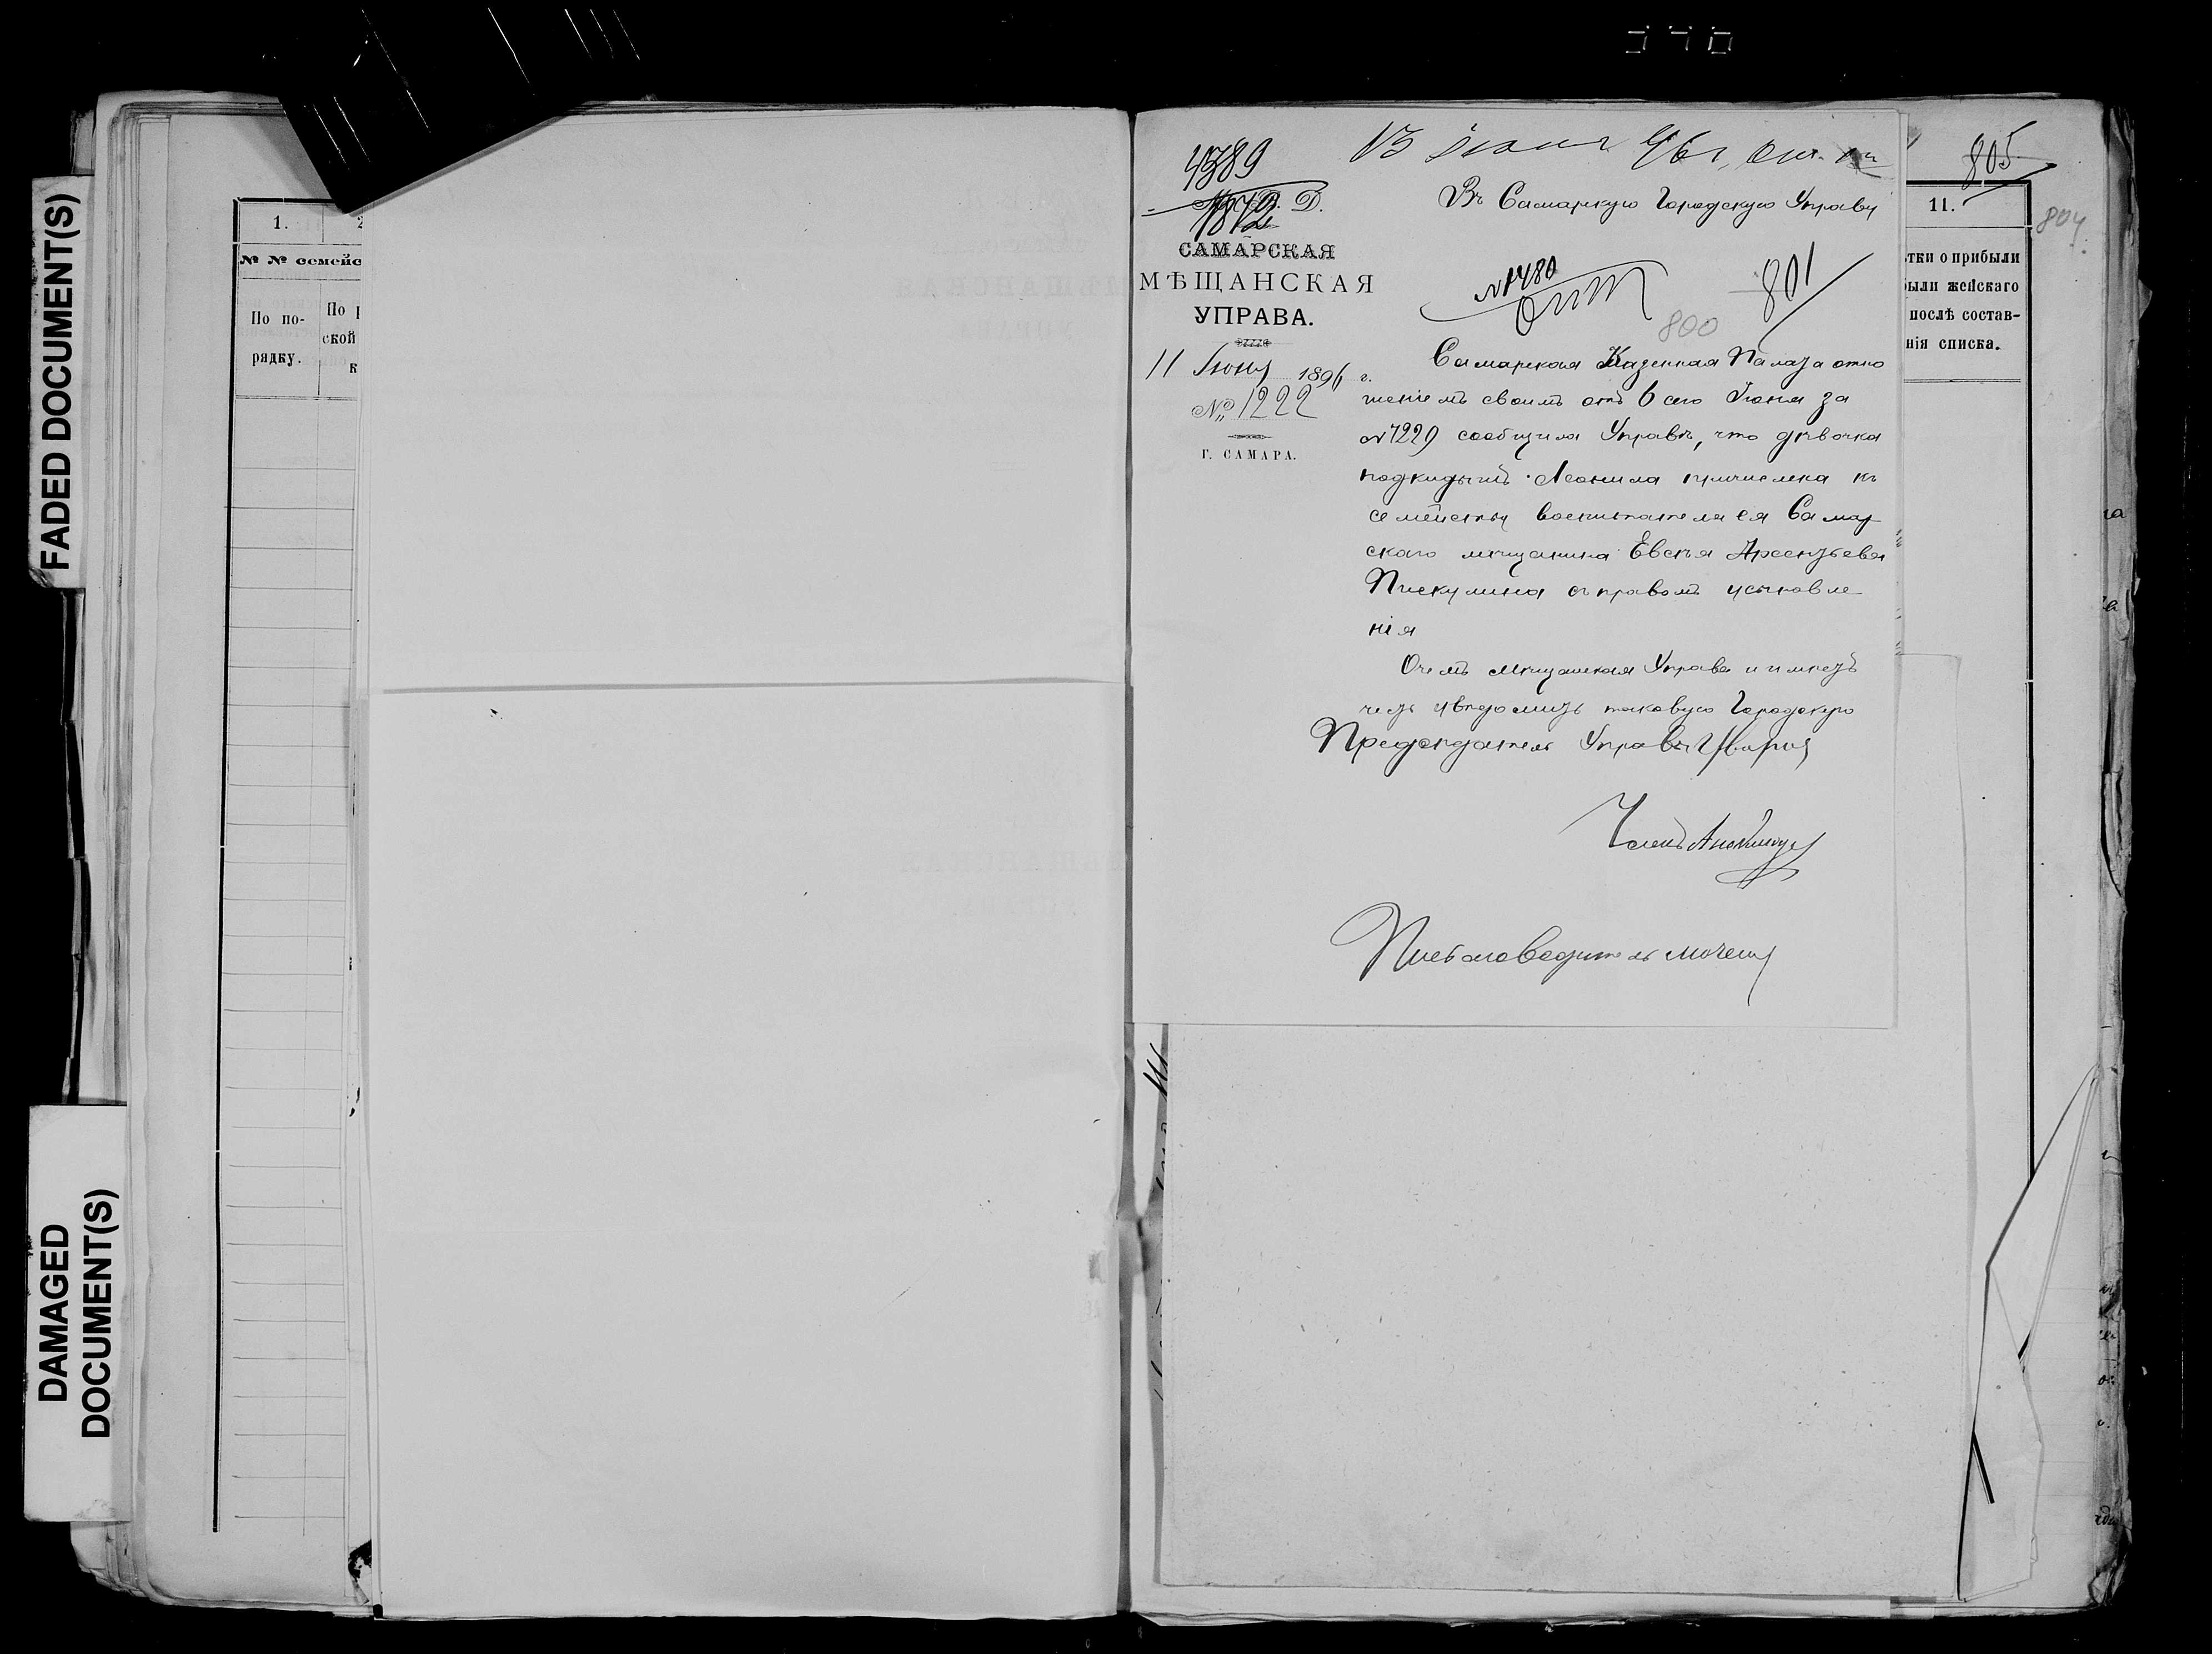 FADED DOCUMENT(S)
DAMAGED
DOCUMENT(S)
1.
№ № семейс
По по-
рядку.
По р
ской
к
4389
М. В. Д.
САМАРСКАЯ
МѢЩАНСКАЯ
УПРАВА.
11 Іюня 1896 г.
№ 1222
Г. САМАРА.
13 іюня 96 г.
Въ Самарскую Городскую Управу
№ 1480
801
800
Самарская Казенная Палата отно
шеніемъ своимъ отъ 6 сего Іюня за
№ 7229 сообщила Управѣ, что дѣвочка
подкидышъ Леонила причислена къ
семейству воспитателя ея Самар
скаго мѣщанина Евсѣя Арсентьева
Пискулина съ правомъ усыновле
нія
О чемъ Мѣщанская Управа и имѣетъ
честь увѣдомить таковую Городскую
Предсѣдатель Управы
Членъ
Письмоводитель
805
804
11.
тки о прибыли
были женскаго
послѣ состав-
нія списка.